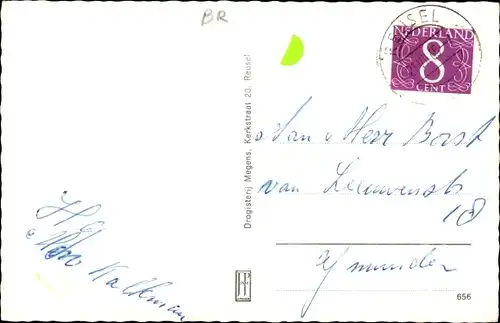 BR
REUSEL
NEDERLAND
8
CENT
Drogisterij Megens, Kerkstraat 20, Reusel
van Heer Borst
van Leeuwenstr
18
IJmuiden
Kalkman
656